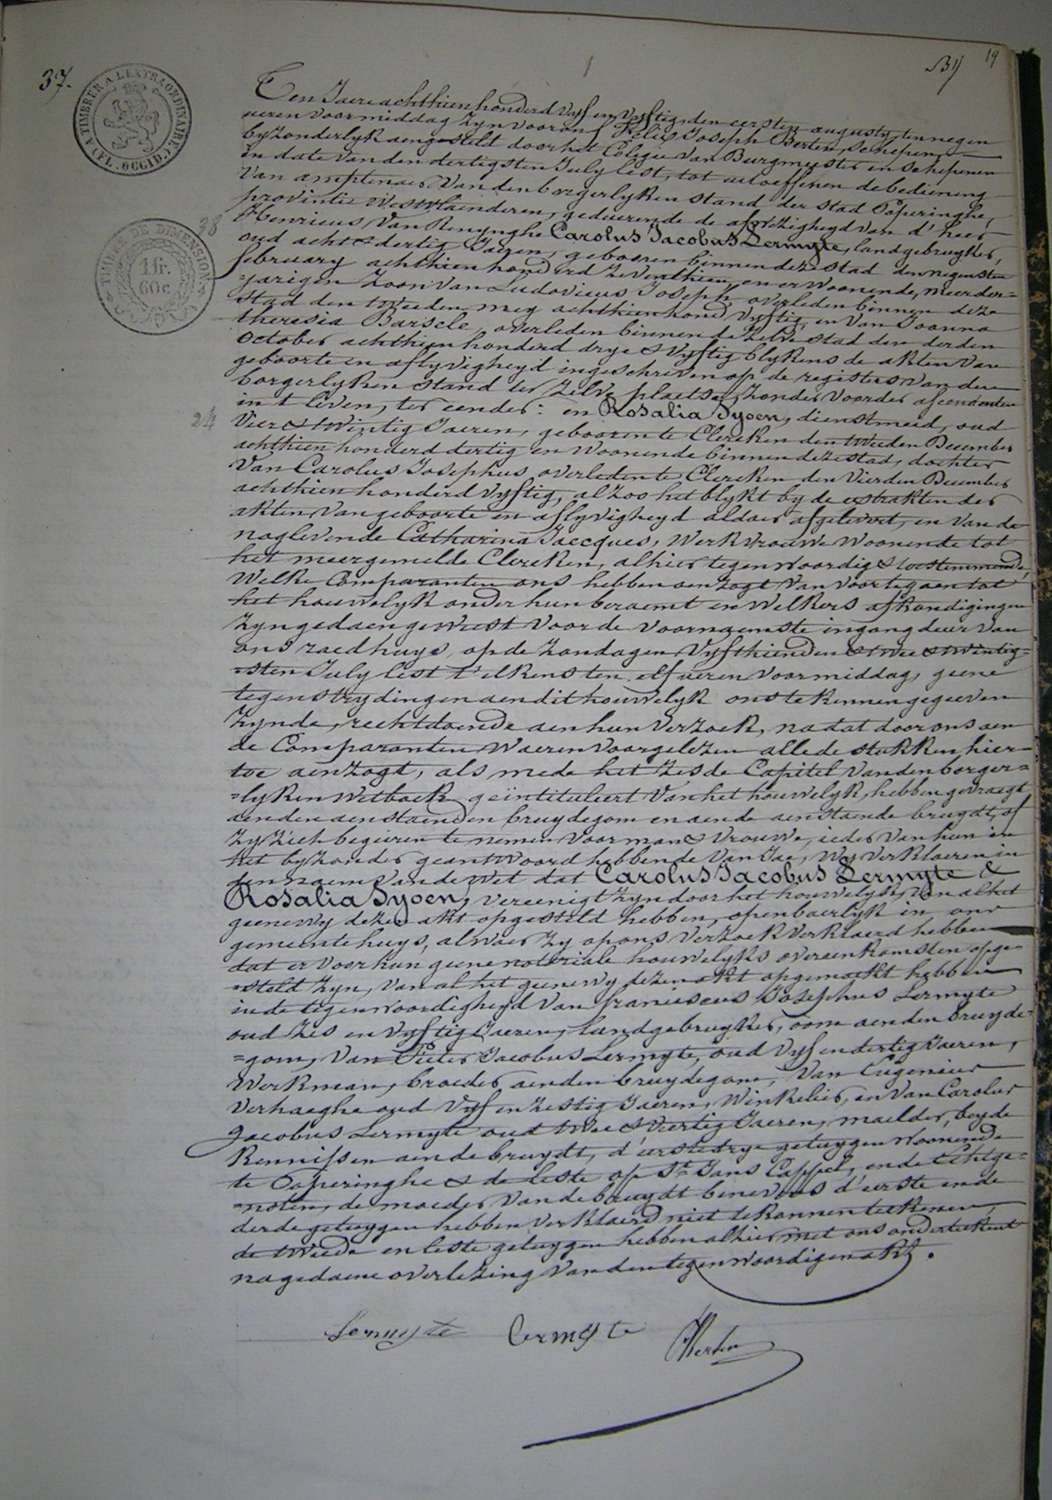 37.
TIMBRER A L'EXTRAORDINAIRE
TIMBRE DE DIMENSION
1 fr.
60 c.
19
38
24
Ten Jaere achthien honderd vyf en vyftig den eersten augusty, ten negen
ueren voormiddag zyn voor ons Felix Joseph Berten, Schepen
byzonderlyk aengesteld door het Collegie van Burgmeester en Schepenen
in date van den dertigsten July lest, tot uitoeffenen de bediening
van amptenaer van den borgerlyken stand der stad Poperinghe,
provintie Westvlaenderen, geduerende de afwezigheyd van d'heer
Henricus Van Renynghe Carolus Jacobus Lermyte, landgebruyker,
oud acht & dertig Jaeren, gebooren binnen deze stad den negensten
february achthien honderd zeventhien, en er woonende, meerder=
=jarigen zoon van Ludovicus Joseph, overleden binnen deze
stad den tweeden mey achthien hond vyftig, en van Joanna
theresia Barsele, overleden binnen de zelve stad den derden
October achthien honderd drye & vyftig blykens de akten van
geboorte en aflyvigheyd ingeschreven op de registers van den
borgerlyken stand ter zelve plaetse, zonder voorder ascendenten
in 't leven, ter eender: en Rosalia Syoen, dienstmeid, oud
vier & twintig Jaeren, gebooren te Clercken den tweeden December
achthien honderd dertig en woonende binnen deze stad, dochter
van Carolus Josephus overleden te Clercken den vierden December
achthien honderd vyftig, alzoo het blykt by de extrakten der
akten van geboorte en aflyvigheyd aldaer afgelevert, en van de
naglevende Catharina Jacques, werkvrouwe woonende tot
het meergemelde Clercken, alhier tegenwoordig & toestemmende,
Welke Comparanten ons hebben aenzogt van voortegaen tot
het houwelyk onder hun beraemt en welkers afkondigingen
zyn gedaen geweest voor de voornaemste ingangdeur van
ons raedhuys, op de zondagen vyfthienden & twee & twintig=
=sten July lest t'elkens ten elf ueren voormiddag, geene
tegenstrydingen aen dit houwelyk ons te kennen gegeeven
zynde, rechtdoende aen hun verzoek, na dat door ons aen
de Comparanten waeren voorgelezen alle de stukken hier=
toe aenzogt, als mede het zesde Capitel van den borger=
=lyken wetboek geïntituleert van het houwelyk, hebben gevraegt
aen den aenstaenden bruydegom en aende aenstaende bruydt, of
zy zich begeeren te nemen voor man & vrouwe, ieder van hun in
het byzonder geantwoord hebbende van Jae, Wy verklaeren in
den naem van de wet dat Carolus Jacobus Lermyte &
Rosalia Syoen, vereenigt zyn door het houwelyk, van al het
geene wy dezen akt opgesteld hebben, openbaerlyk in ons
gemeentehuys, alwaer zy op ons verzoek verklaerd hebben
dat er voor hun geene notariale houwelyks overeenkomsten opge=
=steld zyn, van al het geene wy dezen akt opgemaekt hebben
in de tegenwoordigheyd van franciscus Josephus Lermyte
oud zes en vyftig Jaeren, landgebruyker, oom aen den bruyde=
=gom, van Pieter Jacobus Lermyte, oud vyf en dertig Jaeren,
werkman, broeder aen den bruydegom, van Eugenius
Verhaeghe oud vyf en zestig Jaeren, winkelier, en van Carolus
Jacobus Lermyte oud twee & veertig Jaeren, maelder, beyde
kennissen aen de bruydt, d'eerste drye getuygen woonende
te Poperinghe & de leste op St Jans Cappel, en de Echtge=
=noten, de moeder van de bruydt benevens d'eerste en de
derde getuygen hebben verklaerd niet te konnen teekenen,
de tweede en leste getuygen hebben alhier met ons onderteekent
na gedaene overlezing van den tegenwoordigen akt.
Lermyte Lermyte Berten